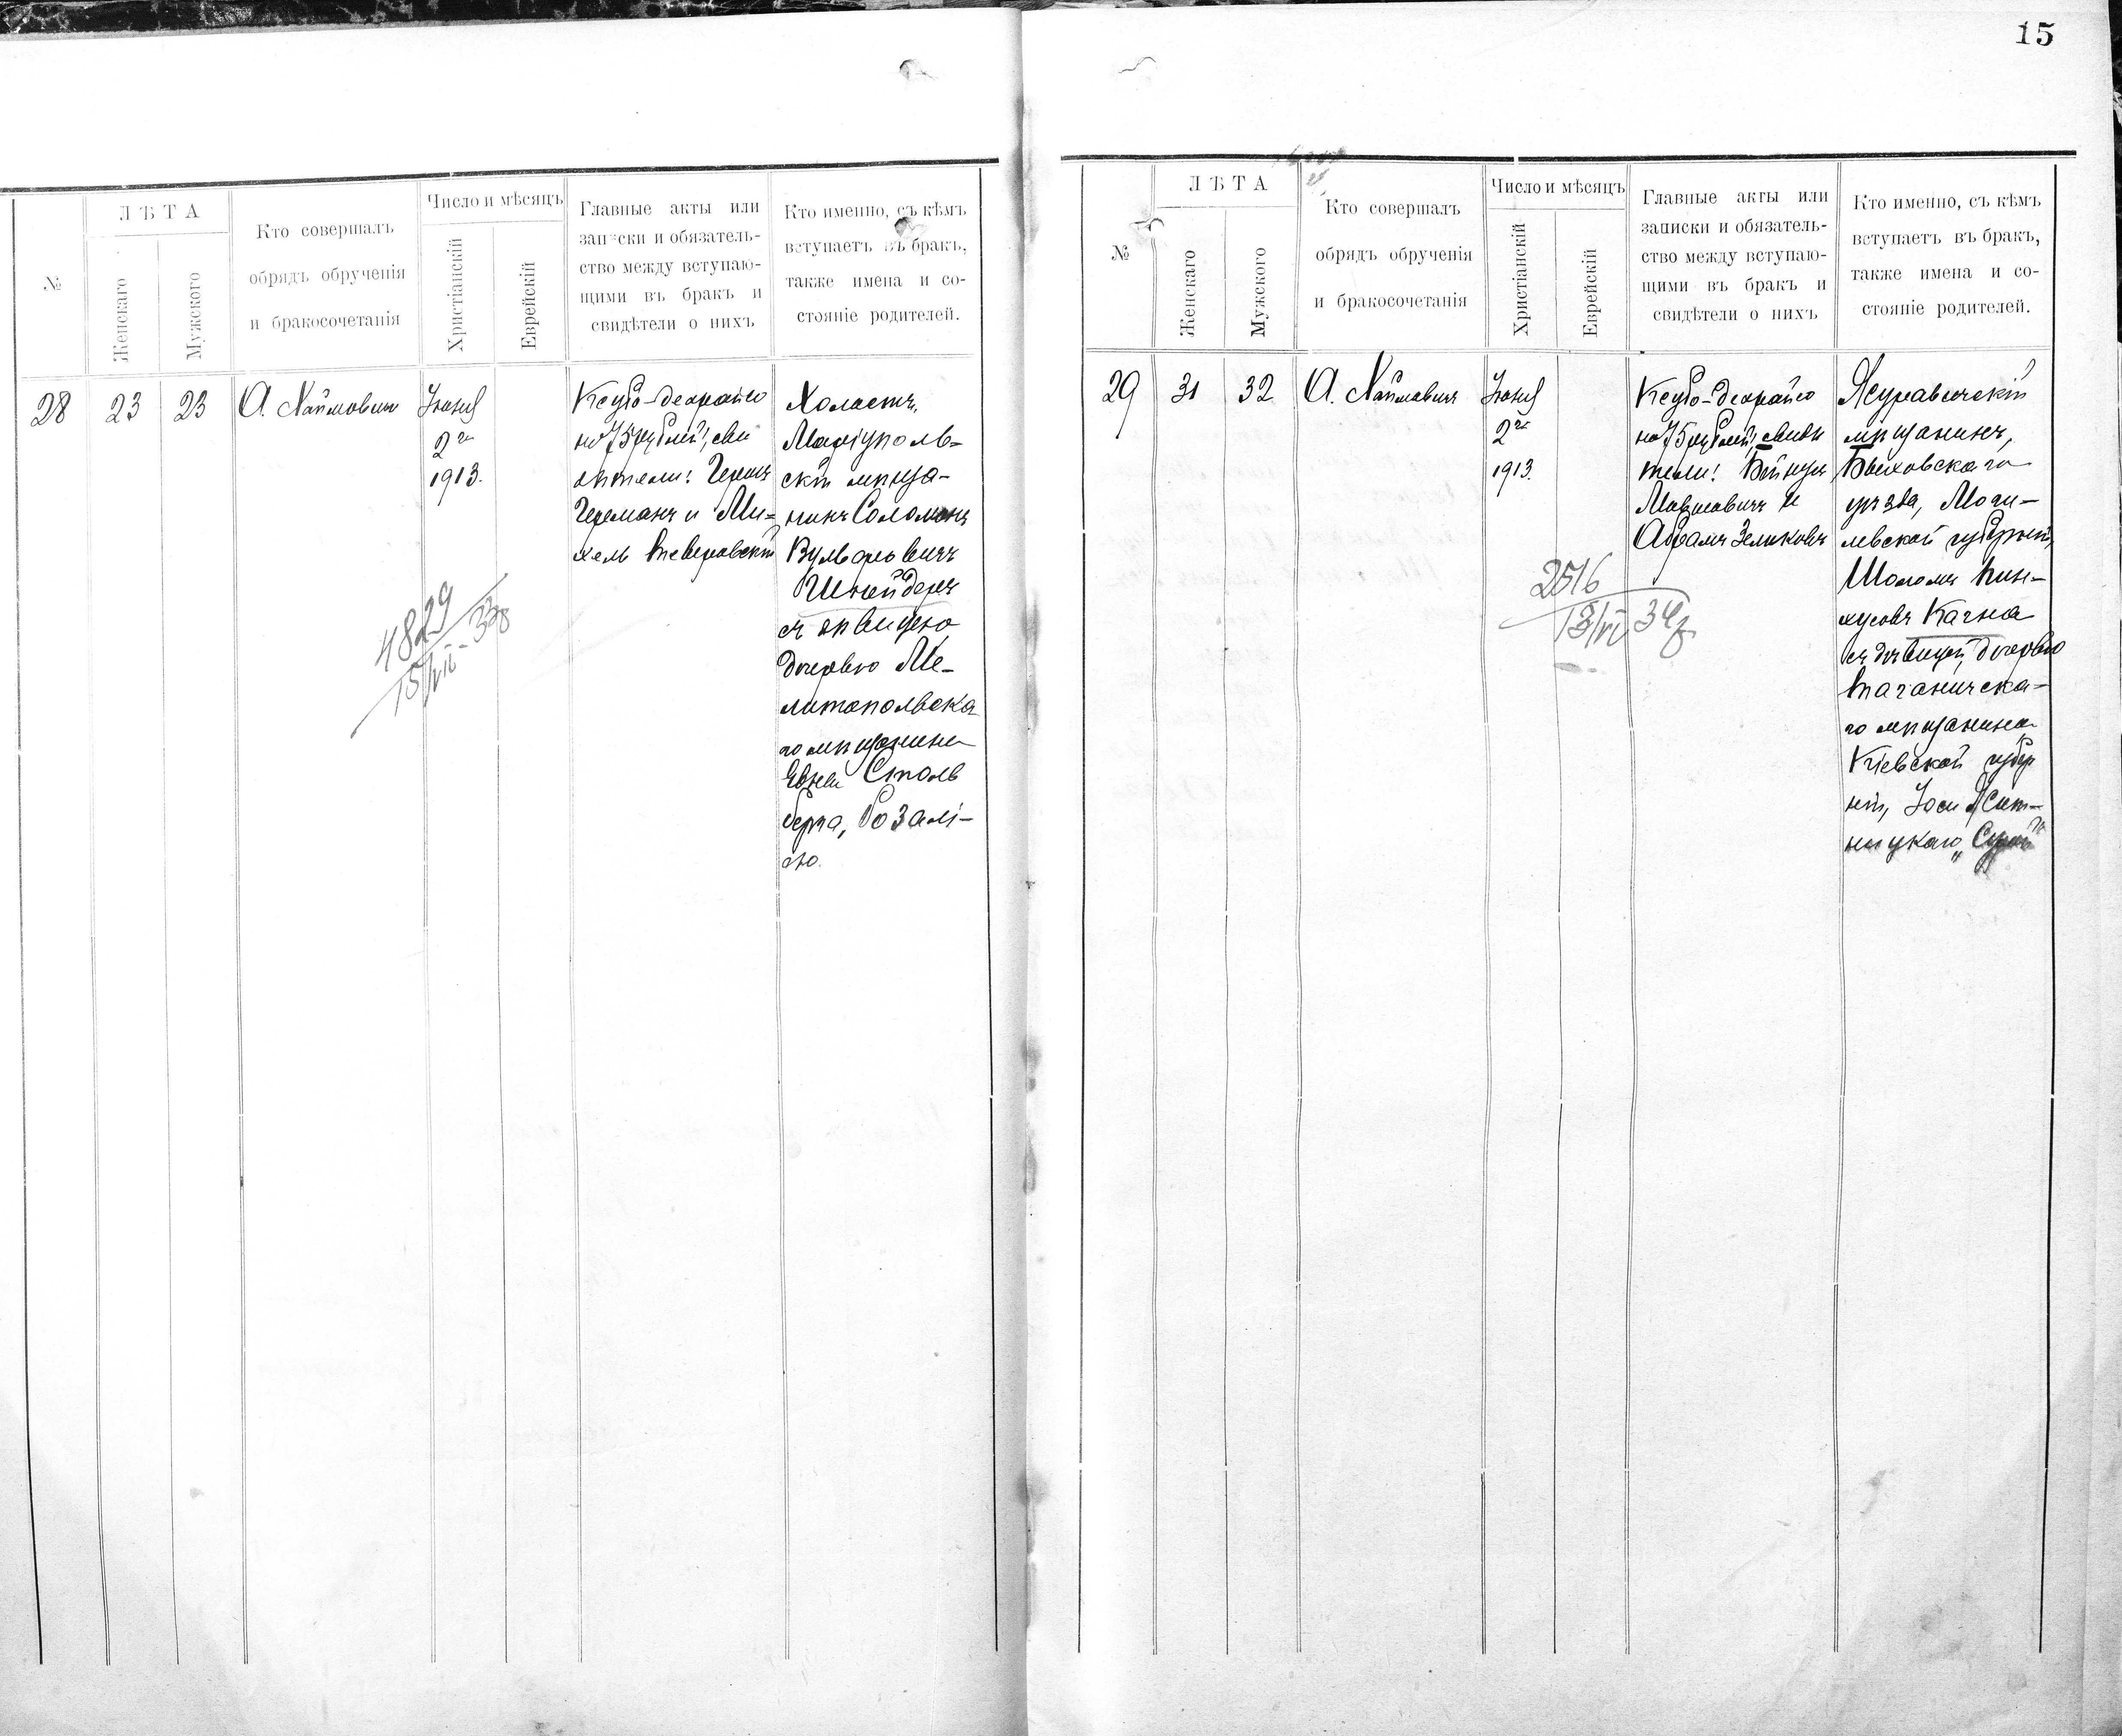 15
№
ЛѢТА
Женскаго
Мужского
Кто совершалъ
обрядъ обрученія
и бракосочетанія
Число и мѣсяцъ
Христіанскій
Еврейскій
Главные акты или
записки и обязатель-
ство между вступаю-
щими въ бракъ и
свидѣтели о нихъ
Кто именно, съ кѣмъ
вступаетъ въ бракъ,
также имена и со-
стояніе родителей.
28
23
23
А. Хаймовичъ
Іюня
2го
1913.
Ксубо-деорайсо
на 75 рублей, сви
дѣтели: Герша
Германъ и Ми-
хель Тверовскій
Холостъ,
Маріуполь-
скій мѣща-
нинъ Соломонъ
Вульфовичъ
Шнейдеръ
съ дѣвицею
дочерью Ме-
литопольска
го мѣщанина
Столь
берга, Розалі-
ею.
4829
15/VII-33
№
ЛѢТА
Женскаго
Мужского
Кто совершалъ
обрядъ обрученія
и бракосочетанія
Число и мѣсяцъ
Христіанскій
Еврейскій
Главные акты или
записки и обязатель-
ство между вступаю-
щими въ бракъ и
свидѣтели о нихъ
Кто именно, съ кѣмъ
вступаетъ въ бракъ,
также имена и со-
стояніе родителей.
29
31
32
А. Хаймовичъ
Іюня
2го
1913.
Ксубо-деорайсо
на 75 рублей, свидѣ
тели:
и
Абрамъ Зеликовъ
Журавичскій
мѣщанинъ,
Быховскаго
уѣзда, Моги-
левской губерніи,
Шоломъ Пин-
хусовъ Кагна
съ дѣвицей, дочерью
Таганчска-
го мѣщанина
Кіевской губер
ніи, Іося Жит-
ницкаго
2516
13/VI 34